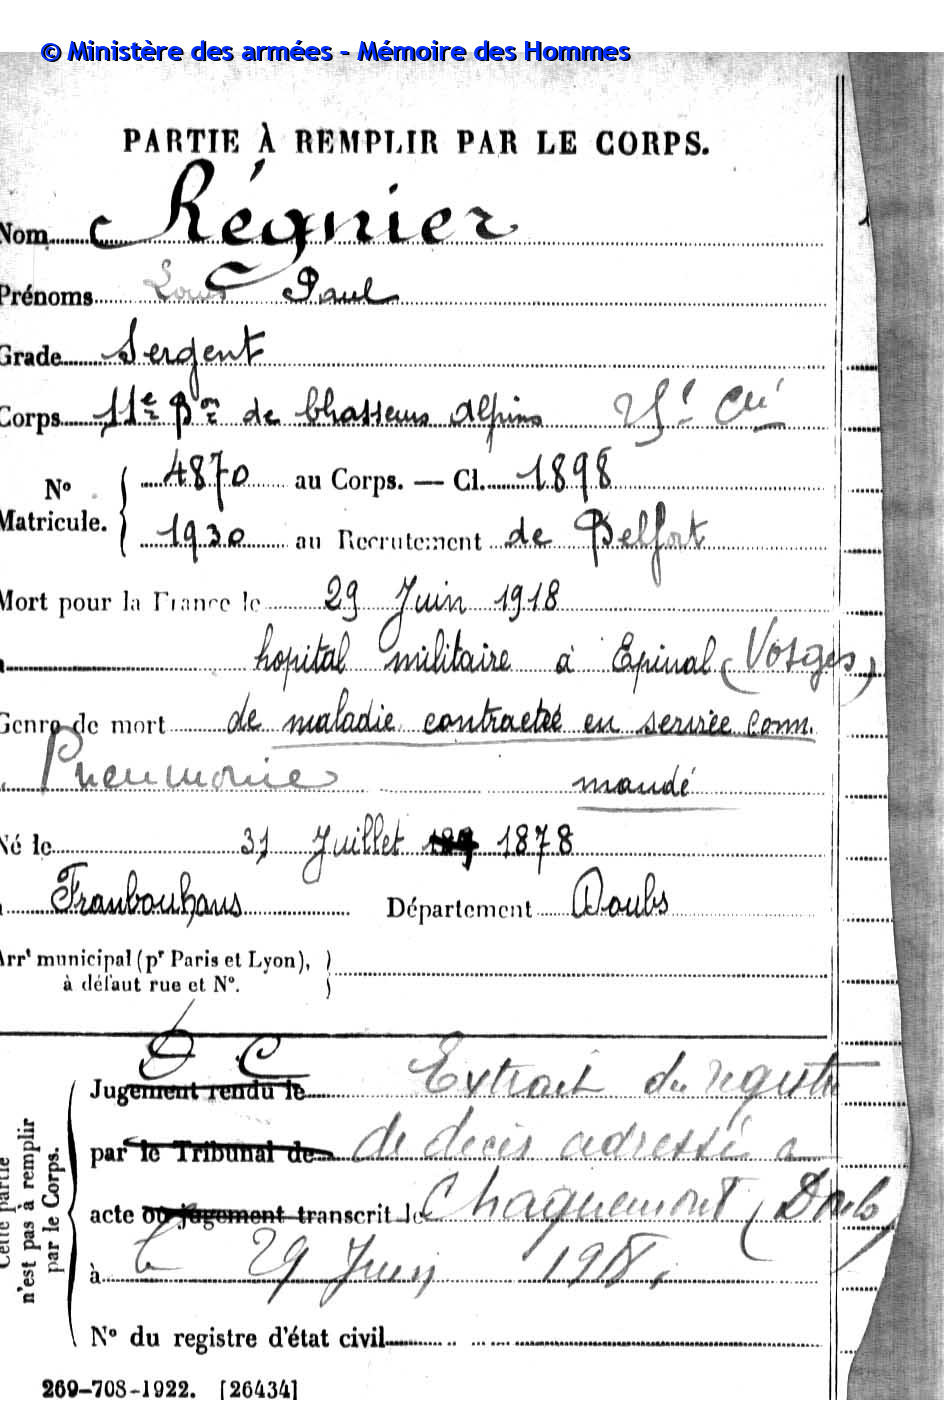 © Ministère des armées - Mémoire des Hommes
PARTIE À REMPLIR PAR LE CORPS.
Nom Régnier
Prénoms Louis Paul
Grade Sergent
Corps 11e Bon de Chasseurs Alpins
N° Matricule. 4870 au Corps. — Cl. 1898
1930 au Recrutement de Belfort
Mort pour la France le 29 Juin 1918
hopital militaire à Epinal (Vosges)
Genre de mort de maladie contractée en service com
Pneumonie mandé
Né le 31 Juillet 1878
Frambouhans Département Doubs
Arrt municipal (pr Paris et Lyon),
à défaut rue et N°.
Cette partie
n'est pas à remplir
par le Corps.
D C
Jugement rendu le Extrait du registre
par le Tribunal de de décès adressé a
acte ou jugement transcrit le (Doubs)
à le 29 Juin 1918.
N° du registre d'état civil
269-708-1922. [26434]